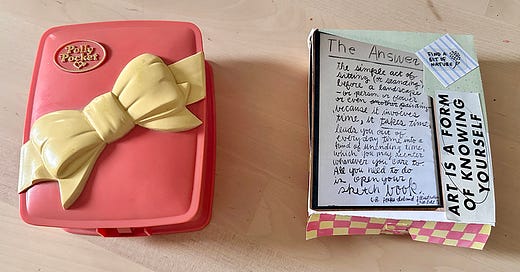 Polly
Pocket
The Answer
the simple act of
sitting (or standing)
before a landscape
- in person or
or even another painting -
because it involves
time, it takes time,
leads you out of
every day time into a
kind of unending time,
which you may reenter
whenever you care to -
All you need to do
is open your
sketch book.
FIND A
BIT OF
NATURE
ART IS A FORM
OF KNOWING
YOURSELF